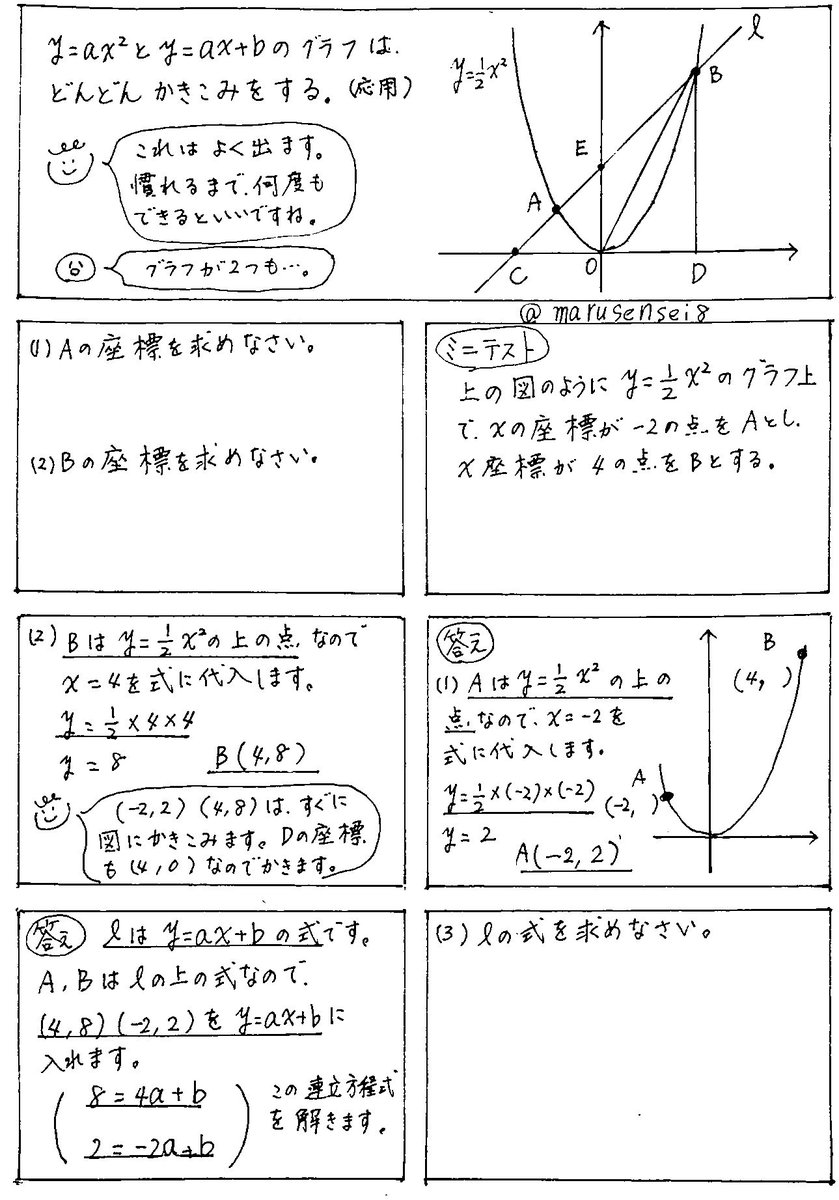 y=ax²とy=ax+bのグラフは、
どんどんかきこみをする。(応用)
これはよく出ます。
慣れるまで、何度も
できるといいですね。
グラフが2つも…。
y=1/2x²
l
B
E
A
C
O
D
@marusensei8
ミニテスト
上の図のようにy=1/2x²のグラフ上
で、xの座標が-2の点をAとし、
x座標が4の点をBとする。
(1)Aの座標を求めなさい。
(2)Bの座標を求めなさい。
答え
(1)Aはy=1/2x²の上の
点、なので、x=-2を
式に代入します。
y=1/2×(-2)×(-2)
y=2
A(-2,2)
B
(4, )
A
(-2, )
(2)Bはy=1/2x²の上の点、なので
x=4を式に代入します。
y=1/2×4×4
y=8
B(4,8)
(-2,2)(4,8)は、すぐに
図にかきこみます。Dの座標
も(4,0)なのでかきます。
(3)lの式を求めなさい。
答え lはy=ax+bの式です。
A,Bはlの上の式なので、
(4,8)(-2,2)をy=ax+bに
入れます。
8=4a+b
2=-2a+b
この連立方程式
を解きます。